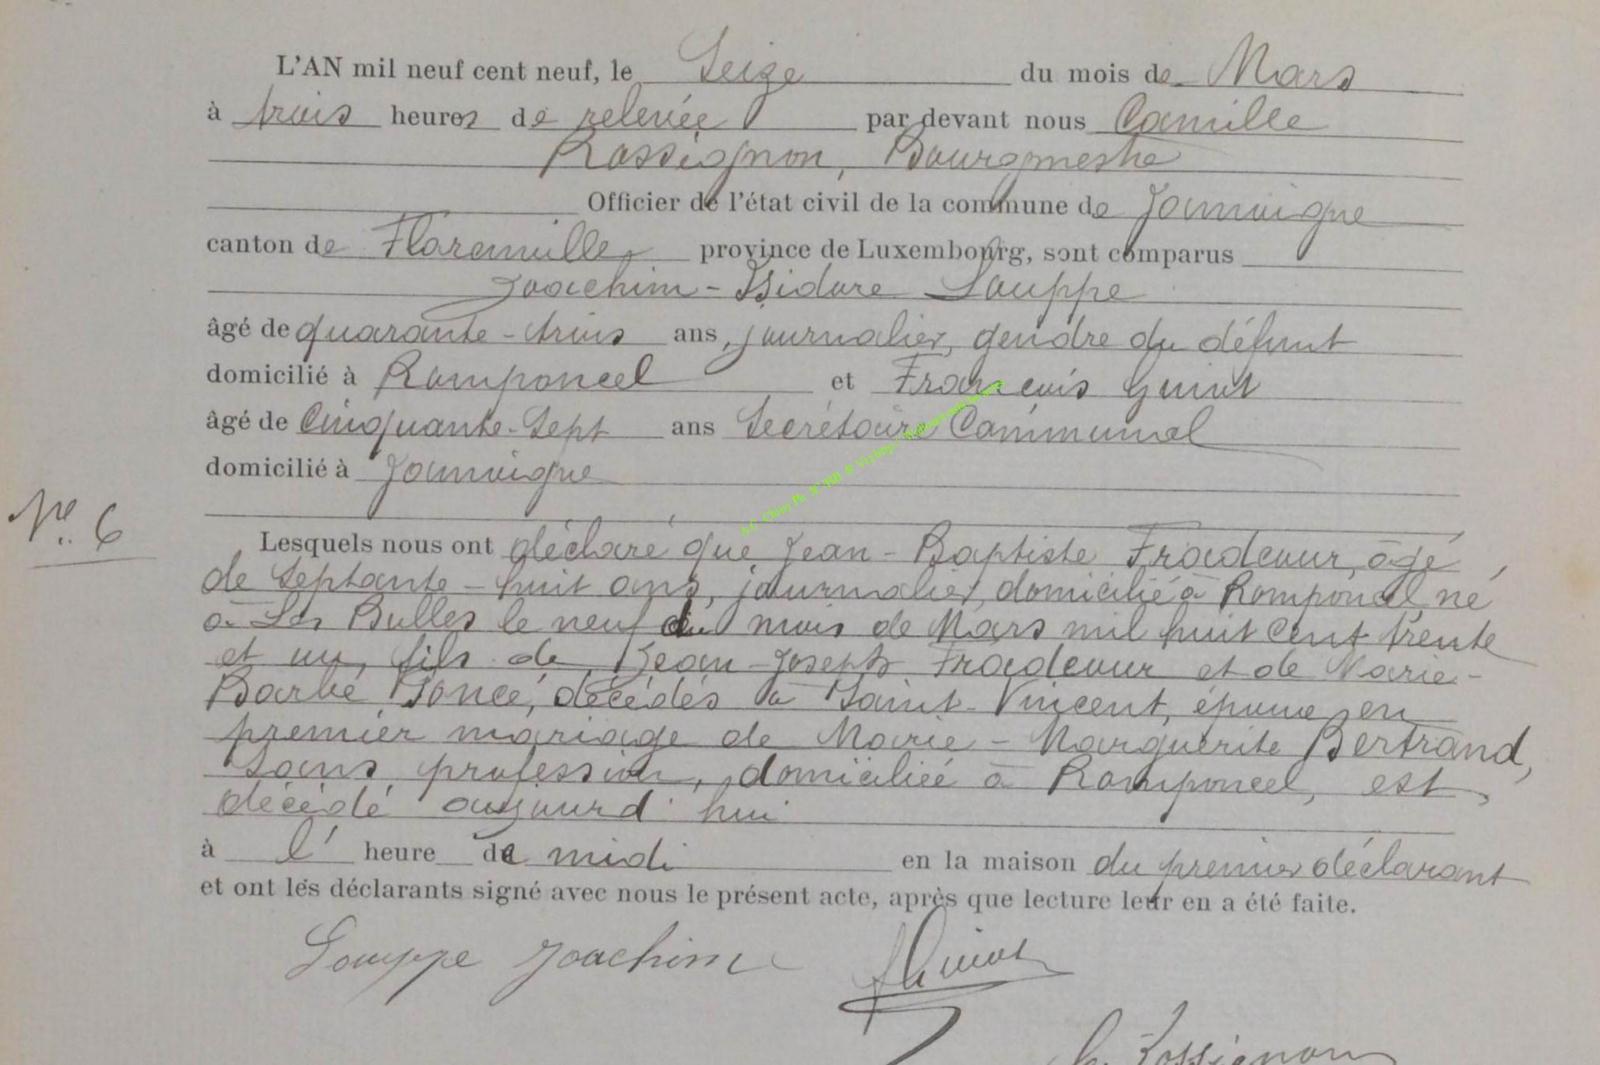 L'AN mil neuf cent neuf, le Seize du mois de Mars
à trois heures de relevée par devant nous Camille
Rossignon, Bourgmestre
Officier de l'état civil de la commune de Jamoigne
canton de Florenville, province de Luxembourg, sont comparus
Joachim-Isidore Louppe
âgé de quarante-trois ans, journalier, gendre du défunt
domicilié à Romponcel et François
âgé de Cinquante-Sept ans Secrétaire Communal
domicilié à Jamoigne
Nº 6
Lesquels nous ont déclaré que Jean-Baptiste Fradcour, âgé
de Septante-huit ans, journalier, domicilié à Romponcel, né
à Les Bulles le neuf du mois de Mars mil huit cent trente
et un, fils de Jean-Joseph Fradcour et de Marie-
Barbe décédés à Saint-Vincent, époux en
premier mariage de Marie-Marguerite Bertrand,
sans profession, domiciliée à Romponcel, est
décédé aujourd'hui
à l' heure de midi en la maison du premier déclarant
et ont les déclarants signé avec nous le présent acte, après que lecture leur en a été faite.
Louppe Joachim
C. Rossignon